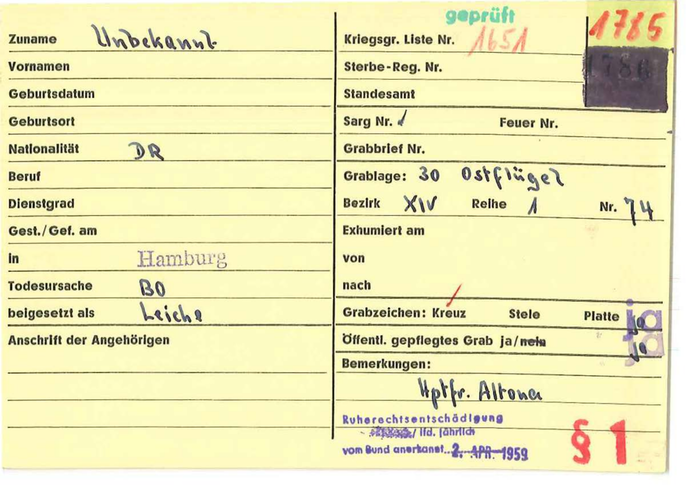 geprüft
1785
Zuname Unbekannt
Kriegsgr. Liste Nr. 1651
Vornamen
Sterbe-Reg. Nr.
Geburtsdatum
Standesamt
Geburtsort
Sarg Nr. Feuer Nr.
Nationalität DR
Grabbrief Nr.
Beruf
Grablage: 30 Ostflügel
Dienstgrad
Bezirk XIV Reihe 1 Nr. 74
Gest./Gef. am
Exhumiert am
in Hamburg
von
Todesursache BO
nach
beigesetzt als Leiche
Grabzeichen: Kreuz Stele Platte ja
Anschrift der Angehörigen
Öffentl. gepflegtes Grab ja/nein ja
Bemerkungen:
Hptfr. Altona
Ruherechtsentschädigung
/ lfd. jährlich
vom Bund anerkannt 2. APR. 1959
§ 1